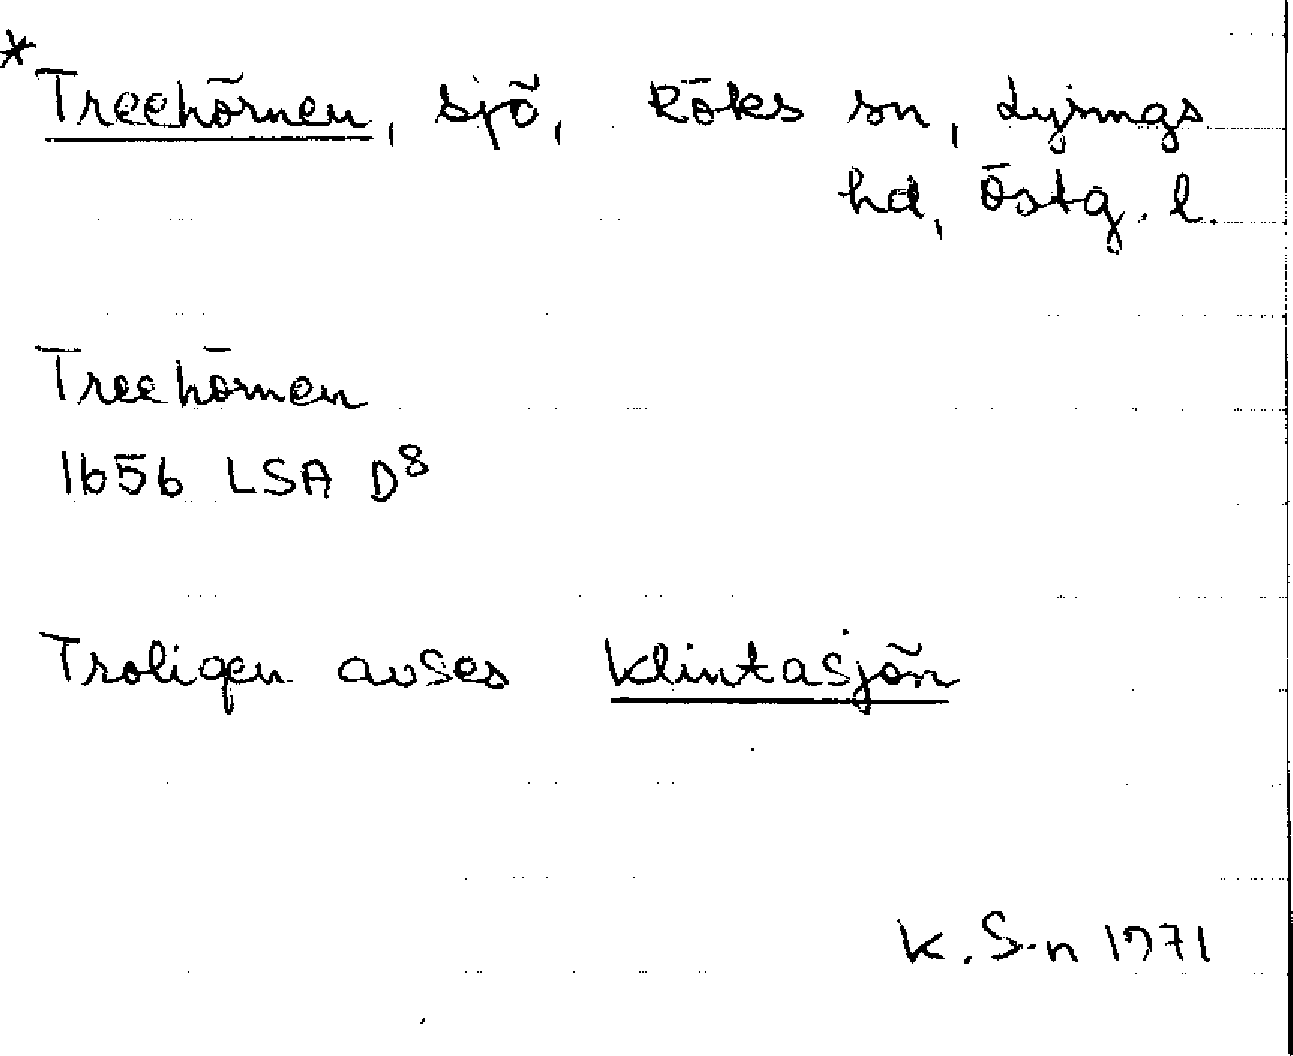 * Treehörnen, sjö, Röks sn, Lysings
hd, Östg. l.
Treehörnen
1656 LSA D8
Troligen avses Klintasjön
K. S-n 1971